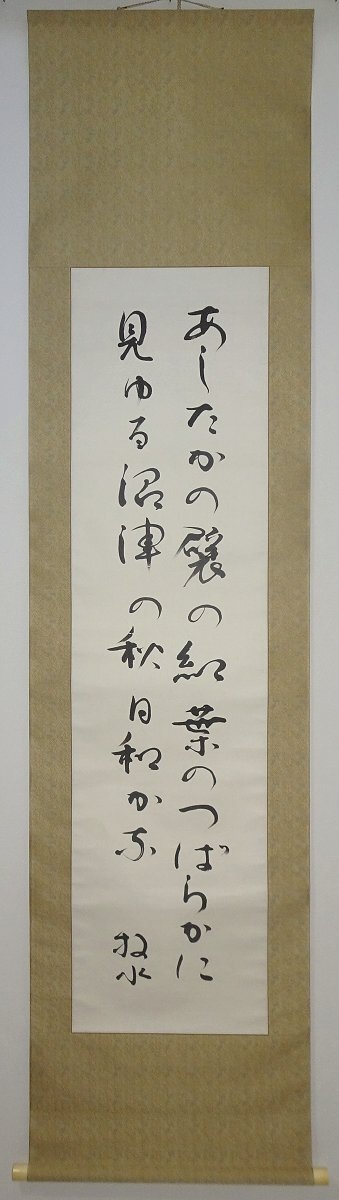 あしたかの襞の紅葉のつばらかに
見ゆる沼津の秋日和かな
牧水